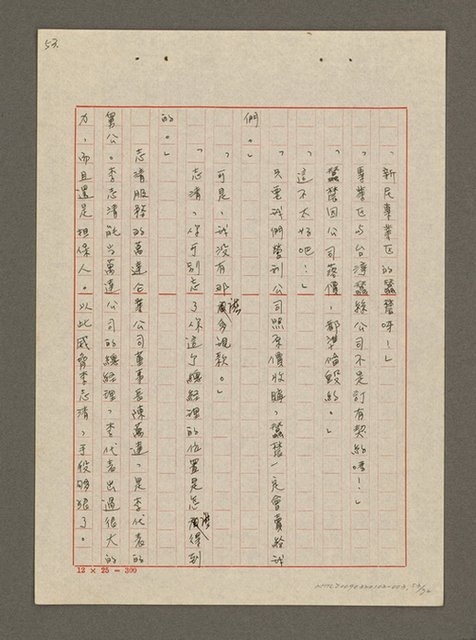 53.
「新民專業區的蠶繭呀！」
「專業區与台灣蠶絲公司不是訂有契約嗎！」
「蠶繭因公司落價，都準備毀約。」
「這不太好吧！」
「只要我們營利公司照原價收購，蠶繭一定會賣給我
們。」
「可是，我沒有那麼多現款。」
「志清，你可別忘了你這个總經理的位置是怎麼得到
的。」
志清服務的萬達企業公司董事長陳萬達，是李代書的
舅公。李志清能当萬達公司的總經理，李代書出過很大的
力，而且還是担保人。以此威脅李志清，手段夠狠了。
12 × 25 = 300